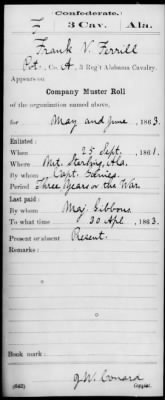 Confederate.
3 Cav. Ala.
Frank V. Ferrill
Pvt., Co. A, 3 Reg't Alabama Cavalry.
Appears on
Company Muster Roll
of the organization named above,
for May and June, 1863.
Enlisted:
When 25 Sept., 1861.
Where Mt. Sterling, Ala.
By whom Capt.
Period Three Years or the War.
Last paid:
By whom Maj. Gibbons.
To what time 30 Apl., 1863.
Present or absent Present.
Remarks:
Book mark:
(642) J. W. Conard
Copyist.